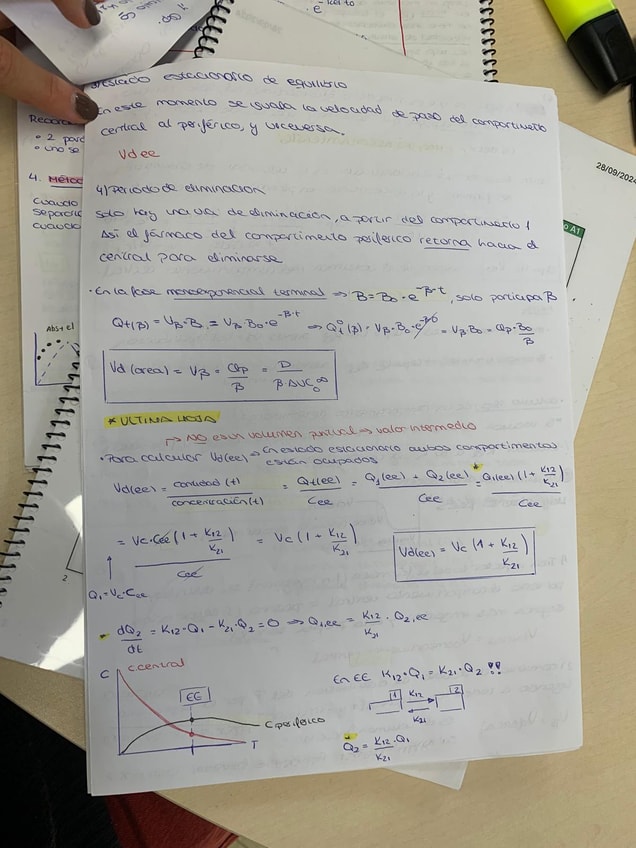 e^-kel·to
28/09/2024
Estado estacionario de equilibrio
En este momento se iguala la velocidad de paso del compartimento
central al periférico, y viceversa.
Vd ee
4) Periodo de eliminación
Solo hay una vía de eliminación, a partir del compartimento 1
Así el fármaco del compartimento periférico retorna hacia el
central para eliminarse
· En la fase monoexponencial terminal ⇒ B = B₀ · e^-β·t, solo participa β
Qt(β) = Vβ · B₀ = Vβ · B₀ · e^-β·t ⇒ Qt⁰(β) = Vβ · B₀ · e^-β·0 = Vβ B₀ = Clp · B₀/β
Vd (area) = Vβ = Clp/β = D/β · AUC₀^∞
* ULTIMA HOJA
↱ NO es un volumen puntual ⇒ valor intermedio
· Para calcular Vd(ee) ⇒ En estado estacionario ambos compartimentos
están ocupados
Vd(ee) = cantidad (t)/concentración (t) = Qt(ee)/Cee = Q₁(ee) + Q₂(ee)/Cee * = Q₁(ee) (1 + K12/K21)/Cee
= Vc · Cee (1 + K12/K21)/Cee = Vc (1 + K12/K21)
Vd(ee) = Vc (1 + K12/K21)
Q₁ = Vc · Cee
dQ₂/dt = K12 · Q₁ - K21 · Q₂ = 0 ⇒ Q₁,ee = K12/K21 · Q₂,ee
C
C.central
EE
C periférico
T
En EE K12 · Q₁ = K21 · Q₂ !!
1 K12 2
K21
* Q₂ = K12/K21 · Q₁
Recorda
· 2 para
· uno se
4. Método
Cuando
separar
cuando
Abs + el
o A1
2